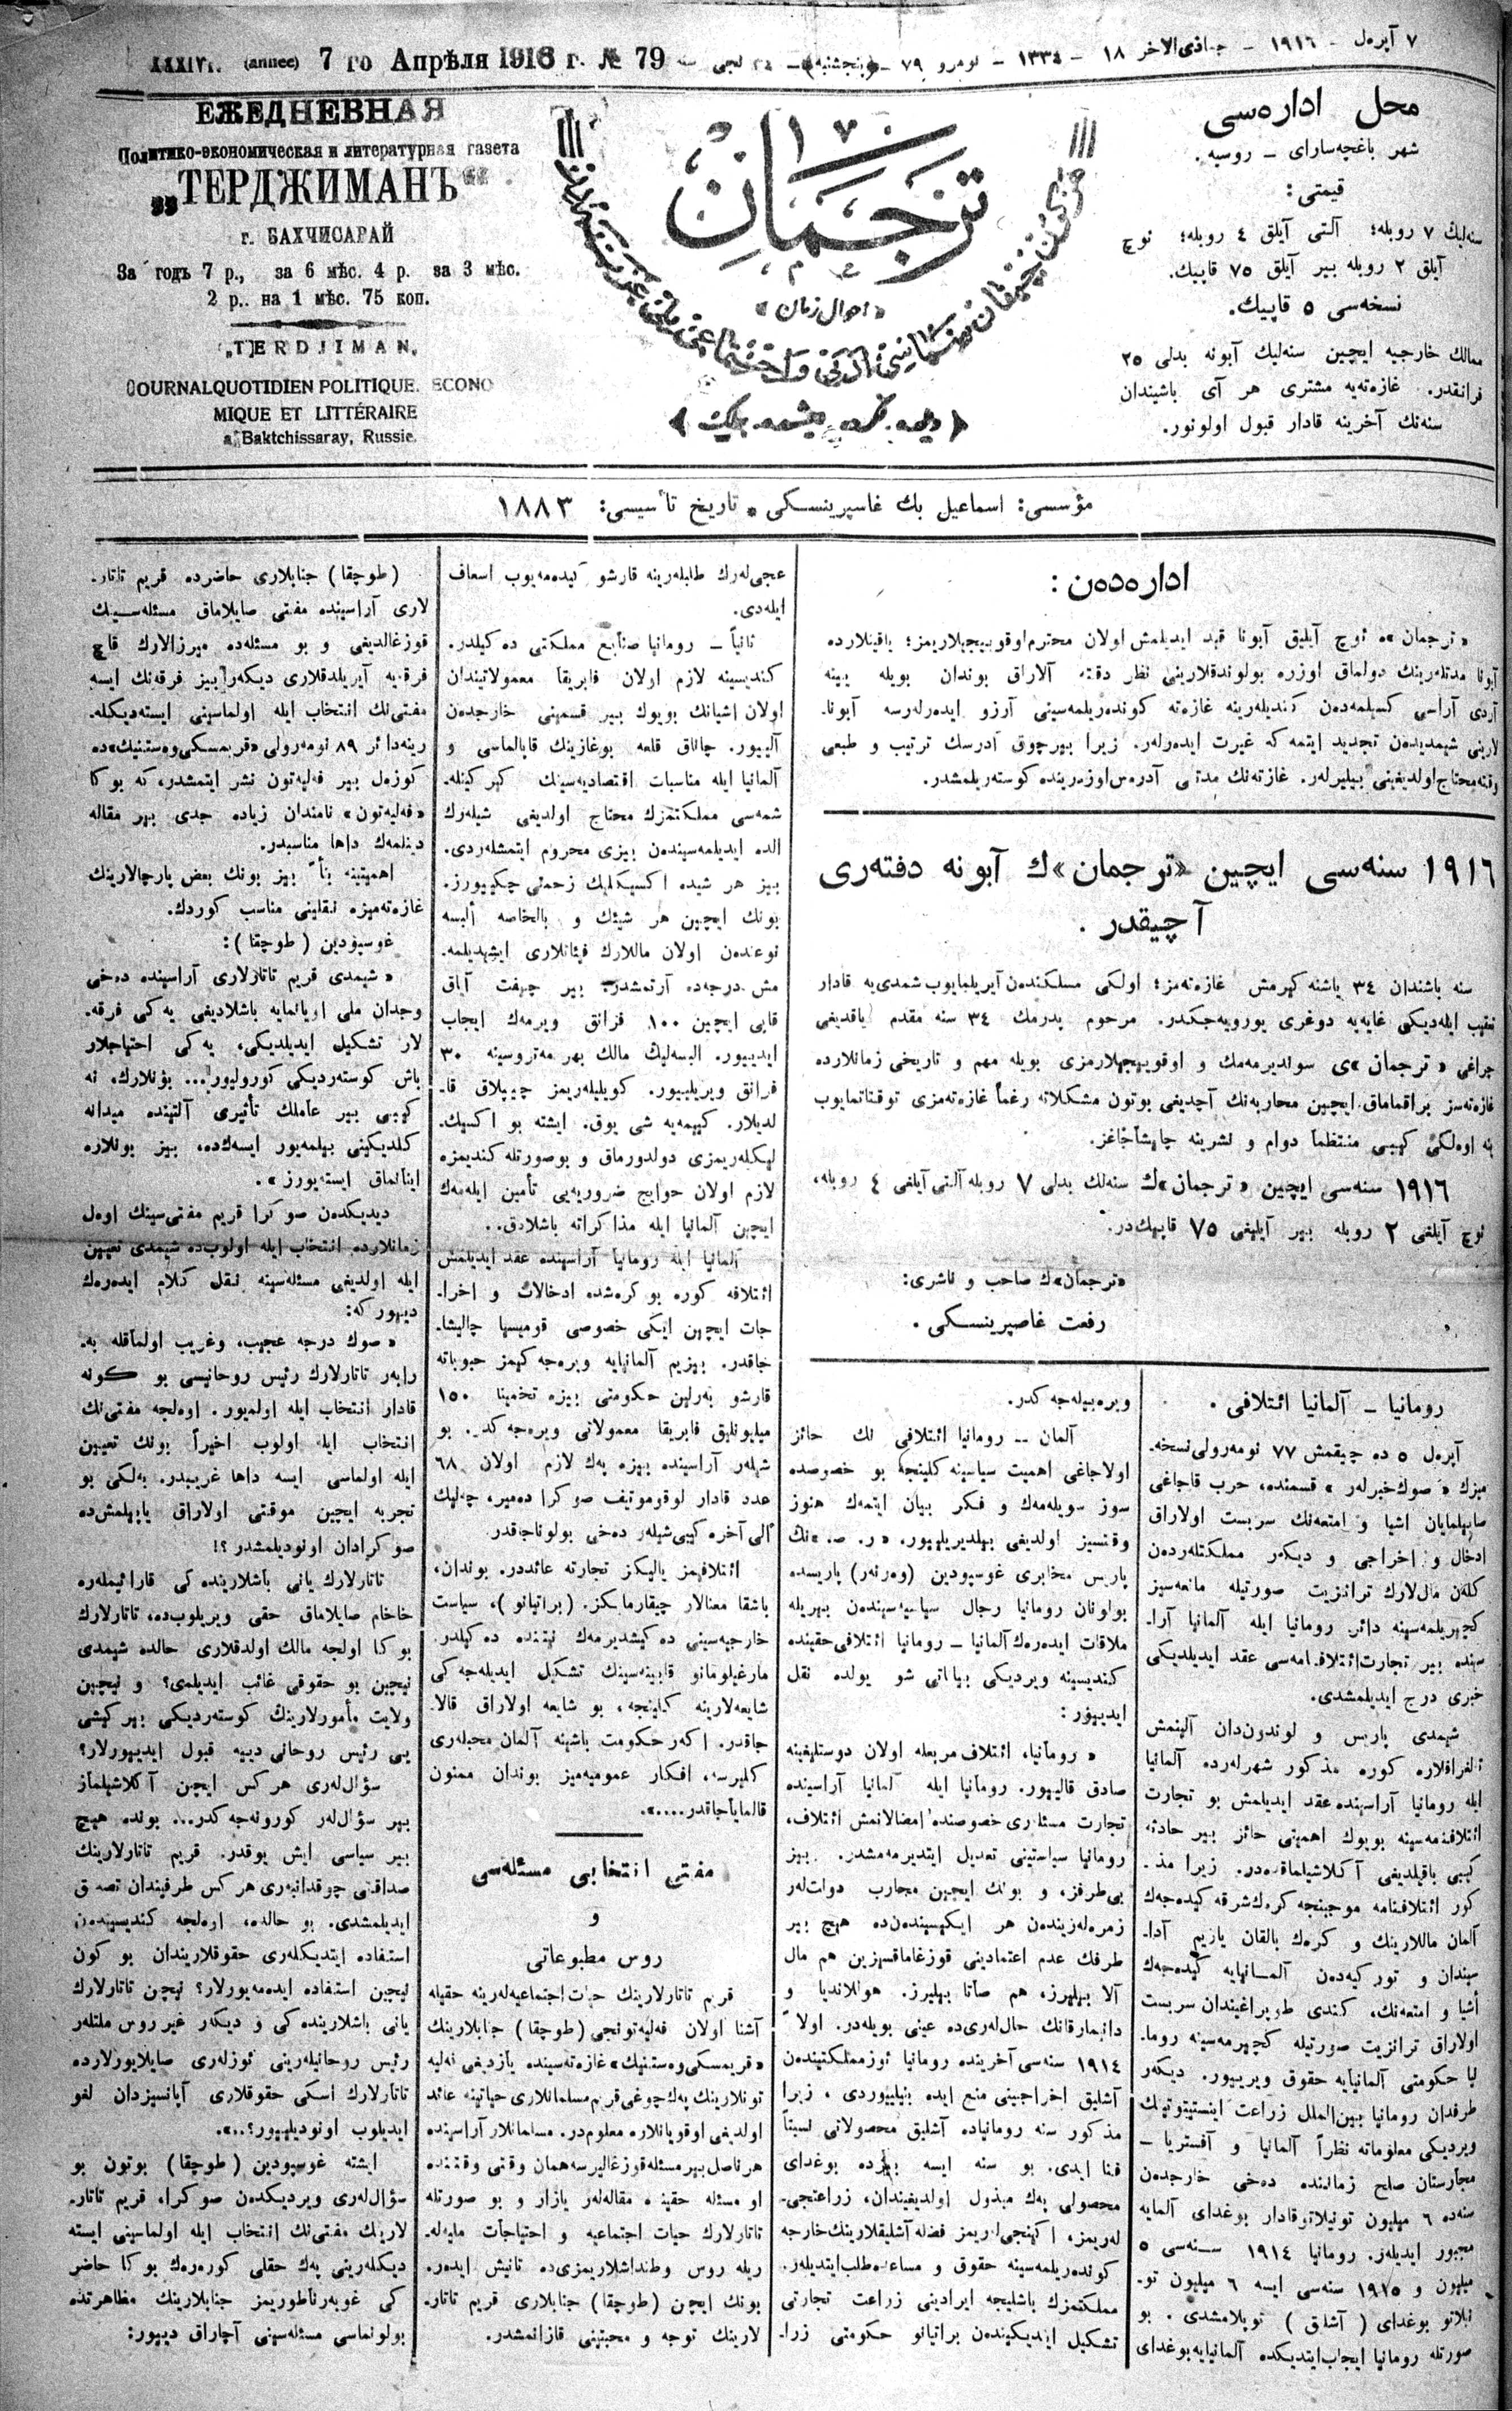 ٧ آپره‌ل – ١٩١٦ – جماذی‌الاخر ١٨ – ١٣٣٤ – نومرو ٧٩ – (پنجشنبه) – ٣٤ نجی سنه
7 го Апрѣля 1916 г. № 79
(annee) XXXIV
محل اداره‌سی
شهر باغچه‌سارای – روسیه.
قیمتی:
سنه‌لیك ٧ روبله؛ آلتی آیلق ٤ روبله؛ ئوچ
آیلق ٢ روبله بیر آیلق ٧٥ قاپیك.
نسخه‌سی ٥ قاپیك.
ممالك خارجیه ایچین سنه‌لیك آبونه بدلی ٢٥
فرانقدر. غازه‌ته‌یه مشتری هر آی باشیندان
سنه‌نك آخرینه قادار قبول اولونور.
ترجمان
«احوال زمان»
«دیلده، فکرده، ایشده بیرلیك»
ЕЖЕДНЕВНАЯ
Политико-экономическая и литературная газета
„ТЕРДЖИМАНЪ“
г. БАХЧИСАРАЙ
За годъ 7 р., за 6 мѣс. 4 р. за 3 мѣс.
2 р.. на 1 мѣс. 75 коп.
„TERDJIMAN„
JOURNALQUOTIDIEN POLITIQUE. ECONO
MIQUE ET LITTÉRAIRE
a Baktchissaray, Russie.
مؤسسی: اسماعیل بك غاسپرینسکی • تاریخ تأسیسی: ١٨٨٣
اداره‌ده‌ن:
«ترجمان»ه ئوچ آیلیق آبونا قید ایدیلمش اولان محترم اوقویوجیلاریمز؛ یاقینلارده
آبونا مدتله‌رینك دولماق اوزره بولوندقلارینی نظر دقته آلاراق بوندان بویله یینه
آردی آراسی کسیلمه‌دن کندیله‌رینه غازه‌ته کونده‌ریلمه‌سینی آرزو ایده‌رله‌رسه آبونا-
لارینی شیمدیده‌ن تجدید ایتمه‌که غیرت ایده‌رله‌ر. زیرا بیرچوق آدرسك ترتیب و طبعی
وقته محتاج اولدیغینی بیلیرله‌ر. غازته‌نك مدتی آدره‌س اوزه‌رینده کوسته‌ریلمشدر.
١٩١٦ سنه‌سی ایچین «ترجمان»ك آبونه دفته‌ری
آچیقدر.
سنه باشندان ٣٤ یاشنه کیرمش غازه‌ته‌مز؛ اولکی مسلکنده‌ن آیریلمایوب شمدی‌یه قادار
تعقیب ایله‌دیکی غایه‌یه دوغری یورویه‌جکدر. مرحوم پدرمك ٣٤ سنه مقدم یاقدیغی
چراغی «ترجمان»ی سوندیرمه‌مك و اوقوییجیلارمزی بویله مهم و تاریخی زمانلارده
غازه‌ته‌سز براقماماق ایچین محاربه‌نك آچدیغی بوتون مشکلاته رغماً غازه‌ته‌مزی توقتاتمایوب
ینه اوه‌لکی کیبی منتظماً دوام و نشرینه چاپشاجاغز.
١٩١٦ سنه‌سی ایچین «ترجمان»ك سنه‌لك بدلی ٧ روبله آلتی آیلغی ٤ روبله،
ئوچ آیلغی ٢ روبله بیر آیلیغی ٧٥ قاپیك‌در.
«ترجمان»ك صاحب و ناشری:
رفعت غاصپرینسکی.
رومانیا – آلمانیا ائتلافی.
آپره‌ل ٥ ده چیقمش ٧٧ نومه‌رولی نسخه-
میزك «صوك خبرله‌ر» قسمنده، حرب قاچاغی
صاییلمایان اشیا و امتعه‌نك سربست اولاراق
ادخال و اخراجی و دیکه‌ر مملکتله‌رده‌ن
کلن مال‌لارك ترانزیت صورتیله مانعه‌سیز
کچیریلمه‌سینه دائر رومانیا ایله آلمانیا آرا-
سنده بیر تجارت ائتلافنامه‌سی عقد ایدیلدیکی
خبری درج ایدیلمشدی.
شیمدی پاریس و لوندون‌دان آلینمش
تلغرافلاره کوره مذکور شهرله‌رده آلمانیا
ایله رومانیا آراسینده عقد ایدیلمش بو تجارت
ائتلافنمه‌سینه بویوك اهمیتی حائز بیر حادثه
کیبی باقیلدیغی آکلاشیلماقده‌در. زیرا مذ-
کور ائتلافنامه موجبنجه کرك شرقه کیده‌جك
آلمان ماللارینك و کره‌ك بالقان یاریم آدا-
سیندان و تورکیه‌دن آلمانیایه کیده‌جك
أشیا و امتعه‌نك، کندی طوپراغیندان سربست
اولاراق ترانزیت صورتیله کچیرمه‌سینه روما-
نیا حکومتی آلمانیایه حقوق ویرییور. دیکه‌ر
طرفدان رومانیا بین‌الملل زراعت اینستیتوتینك
ویردیکی معلوماته نظراً آلمانیا و آفستریا –
مجارستان صلح زماننده ده‌خی خارجده‌ن
سنه‌ده ٦ میلیون تونیلاتو قادار بوغدای آلمایه
مجبور ایدیله‌ر. رومانیا ١٩١٤ سنه‌سی ٥
میلیون و ١٩١٥ سنه‌سی ایسه ٦ میلیون تو-
نیلاتو بوغدای (آشلق) توپلامشدی. بو
صورتله رومانیا ایجاب ایتدیکده آلمانیایه بوغدای
ویره‌بیله‌جه‌کدر.
آلمان – رومانیا ائتلافی نك حائز
اولاجاغی اهمیت سیاسیه‌سینه کلینجه بو خصوصده
سوز سویله‌مه‌ك و فکر بیان ایتمه‌ك هنوز
وقتسیز اولدیغی بیلدیریلییور. «ر. ص.»نك
پاریس مخابری غوسپودین (وه‌رنه‌ر) پاریسده
بولونان رومانیا رجال سیاسیه‌سینده‌ن بیریله
ملاقات ایده‌ره‌ك آلمانیا – رومانیا ائتلافی حقینده
کندیسینه ویردیکی بیاناتی شو یولده نقل
ایدییور:
«رومانیا، ائتلاف مربعله اولان دوستلیغینه
صادق قالییور. رومانیا ایله آلمانیا آراسینده
تجارت مسئله‌لری خصوصنده امضالانمش ائتلاف،
رومانیا سیاستینی تعدیل ایتدیرمه‌مشدر. بیز
بی‌طرفز، و بونك ایچین محارب دولت‌له‌ر
زمره‌له‌رینده‌ن هر ایکیسینده‌ن‌ده هیچ بیر
طرفك عدم اعتمادینی قوزغاماقسزین هم مال
آلا بیلیرز، هم صاتا بیلیرز. هوللاندیا و
دانیمارقانك حال‌له‌ری‌ده عینی بویله‌در. اولا ً
١٩١٤ سنه‌سی آخرینده رومانیا ئوز مملکتینده‌ن
آشلیق اخراجینی منع ایده بیلییوردی، زیرا
مذکور سنه رومانیاده آشلیق محصولاتی نسبتاً
فنا ایدی. بو سنه ایسه بیزده بوغدای
محصولی پك مبذول اولدیغیندان، زراعتجی-
له‌ریمز، اکینجی‌له‌ریمز فضله آشلیقلارینك خارجه
کونده‌ریلمه‌سینه حقوق و مساعده طلب ایتدیله‌ر.
مملکتمزك باشلیجه ایرادینی زراعت تجارتی
تشکیل ایتدیکینده‌ن براتیانو حکومتی زرا-
عجی‌له‌رك طلبله‌رینه قارشو کیده‌مه‌یوب اسعاف
ایله‌دی.
ثانیاً – رومانیا صنایع مملکتی ده‌کیلدر.
کندیسینه لازم اولان فابریقا معمولاتیندان
اولان اشیانك بویوك بیر قسمینی خارجده‌ن
آلییور. چاناق قلعه بوغازینك قاپالماسی و
آلمانیا ایله مناسبات اقتصادیه‌سینك کیرکینله-
شمه‌سی مملکتمزك محتاج اولدیغی شیله‌رك
الده ایدیلمه‌سینده‌ن بیزی محروم ایتمشله‌ردی.
بیز هر شیده اکسیکلیك زحمتی چکییورز.
بونك ایچین هر شیئك و بالخاصه ألبسه
نوعنده‌ن اولان ماللارك فیئاتلاری ایشیدیلمه-
مش درجه‌ده آرتمشدر. بیر چیفت آیاق
قابی ایچین ١٠٠ فرانق ویرمه‌ك ایجاب
ایدییور. البسه‌لیك مالك بهر مه‌تروسینه ٣٠
فرانق ویریلییور. کویلیله‌ریمز چیپلاق قا-
لدیلار. کییمه‌یه شی یوق. ایشته بو اکسیك-
لیکله‌ریمزی دولدورماق و بو صورتله کندیمزه
لازم اولان حوایج ضروریه‌یی تأمین ایله‌مه‌ك
ایچین آلمانیا ایله مذاکراته باشلادق..
آلمانیا ایله رومانیا آراسینده عقد ایدیلمش
ائتلافه کوره بوکره‌شده ادخالات و اخرا-
جات ایچین ایکی خصوصی قومیسیا چالیشا-
جاقدر. بیزیم آلمانیایه ویره‌جه‌کیمز حبوباته
قارشو به‌رلین حکومتی بیزه تخمیناً ١٥٠
میلیونلیق فابریقا معمولاتی ویره‌جه‌کدر. بو
شیله‌ر آراسینده بیزه پك لازم اولان ٦٨
عدد قادار لوقوموتیف صوکرا ده‌میر، چه‌لیك
الی آخره کیبی شیله‌ر ده‌خی بولوناجاقدر.
ائتلافیمز یالیکز تجارته عائددر. بوندان،
باشقا معنالار چیقارماسکز. (براتیانو)، سیاست
خارجیه‌سینی ده‌کیشدیرمه‌ك نیتنده ده‌کیلدر.
مارغیلومانو قابینه‌سینك تشکیل ایدیله‌جه‌کی
شایعه‌لارینه کلینجه، بو شایعه اولاراق قالا-
جاقدر. اکه‌ر حکومت باشینه آلمان محبله‌ری
کلیرسه، افکار عمومیه‌میز بوندان ممنون
قالمایاجاقدر....».
مفتی انتخابی مسئله‌سی
و
روس مطبوعاتی
قریم تاتارلارینك حیات اجتماعیه‌له‌رینه حقیله
آشنا اولان فه‌لیه‌تونجی (طوچقا) جنابلارینك
«قریمسکی وه‌ستنیك» غازه‌ته‌سینده یازدیغی فه‌لیه
تونلارینك پك چوغی قریم مسلمانلاری حیاتینه عائد
اولدیغی اوقویانلاره معلوم‌در. مسلمانلار آراسینده
هر ناصل بیر مسئله قوزغالیرسه همان وقتی وقتنده
او مسئله حقینده مقاله‌له‌ر یازار و بو صورتله
تاتارلارك حیات اجتماعیه و احتیاجات ملیه‌له-
ریله روس وطنداشلاریمزی‌ده تانیش ایده‌ر.
بونك ایچن (طوچقا) جنابلاری قریم تاتار-
لارینك توجه و محبتینی قازانمشدر.
(طوچقا) جنابلاری حاضرده قریم تاتار-
لاری آراسینده مفتی صایلاماق مسئله‌سینك
قوزغالدیغی و بو مسئله‌ده میرزالارك قاچ
فرقه‌یه آیریلدقلاری دیکه‌ر بیز فرقه‌نك ایسه
مفتی‌نك انتخاب ایله اولماسینی ایسته‌دیکله-
رینه دائر ٨٩ نومه‌رولی «قریمسکی وه‌ستنیك»ده
کوزه‌ل بیر فه‌لیه‌تون نشر ایتمشدر، که بوکا
«فه‌لیه‌تون» نامندان زیاده جدی بیر مقاله
دینلمه‌ك داها مناسبدر.
اهمیتینه بناً بیز بونك بعض پارچالارینك
غازه‌ته‌میزه نقلینی مناسب کوردك.
غوسپودین (طوچقا):
«شیمدی قریم تاتارلاری آراسینده ده‌خی
وجدان ملی اویانمایه باشلادیغی یه‌کی فرقه-
لار تشکیل ایدیلدیکی، یه‌کی احتیاجلار
باش کوسته‌ردیکی کورولیور... بونلارك نه
کیبی بیر عاملك تأثیری آلتینده میدانه
کلدیکینی بیلمه‌یور ایسه‌ك‌ده، بیز بونلاره
اینانماق ایسته‌یورز».
دیدیکده‌ن صوکرا قریم مفتی‌سینك اوه‌ل
زمانلارده انتخاب ایله اولوب‌ده شیمدی تعیین
ایله اولدیغی مسئله‌سینه نقل کلام ایده‌ره‌ك
دییور که:
«صوك درجه عجیب، وغریب اولماقله به-
رابه‌ر تاتارلارك رئیس روحانیسی بو کونه
قادار انتخاب ایله اولمیور. اوه‌لجه مفتی‌نك
انتخاب ایله اولوب اخیراً بونك تعیین
ایله اولماسی ایسه داها غریبدر. به‌لکی بو
تجربه ایچین موقتی اولاراق یاپیلمش‌ده
صوکرادان اونودیلمشدر؟!
تاتارلارك یانی باشلارینده‌کی قارائیمله‌ره
خاخام صایلاماق حقی ویریلوب‌ده، تاتارلارك
بوکا اولجه مالك اولدقلاری حالده شیمدی
نیچین بو حقوقی غائب ایدیلمی؟ و نیچین
ولایت مأمورلارینك کوسته‌ردیکی بیر کیشی
یی رئیس روحانی دییه قبول ایدییورلار؟
سؤال‌له‌ری هر کس ایچین آکلاشیلماز
بیر سؤال‌له‌ر کورونه‌جه‌کدر... بونده هیچ
بیر سیاسی ایش یوقدر. قریم تاتارلارینك
صداقتی چوقدانبه‌ری هر کس طرفیندان تصدیق
ایدیلمشدی. بو حالده، اوه‌لجه کندیسینده‌ن
استفاده ایتدیکله‌ری حقوقلاریندان بو کون
نیچین استفاده ایده‌مه‌یورلار؟ نیچن تاتارلارك
یانی باشلارینده‌کی و دیکه‌ر غیر روس ملتله‌ر
رئیس روحانیله‌رینی ئوزله‌ری صایلایورلارده
تاتارلارك اسکی حقوقلاری آپانسیزدان لغو
ایدیلوب اونودیلییور؟..».
ایشته غوسپودین (طوچقا) بوتون بو
سؤال‌له‌ری ویردیکده‌ن صوکرا، قریم تاتار-
لارینك مفتی‌نك انتخاب ایله اولماسینی ایسته
دیکله‌رینی پك حقلی کوره‌ره‌ك بوکا حاضر
کی غوبه‌رناطوریمز جنابلارینك مظاهرتده
بولونماسی مسئله‌سینی آچاراق دییور: